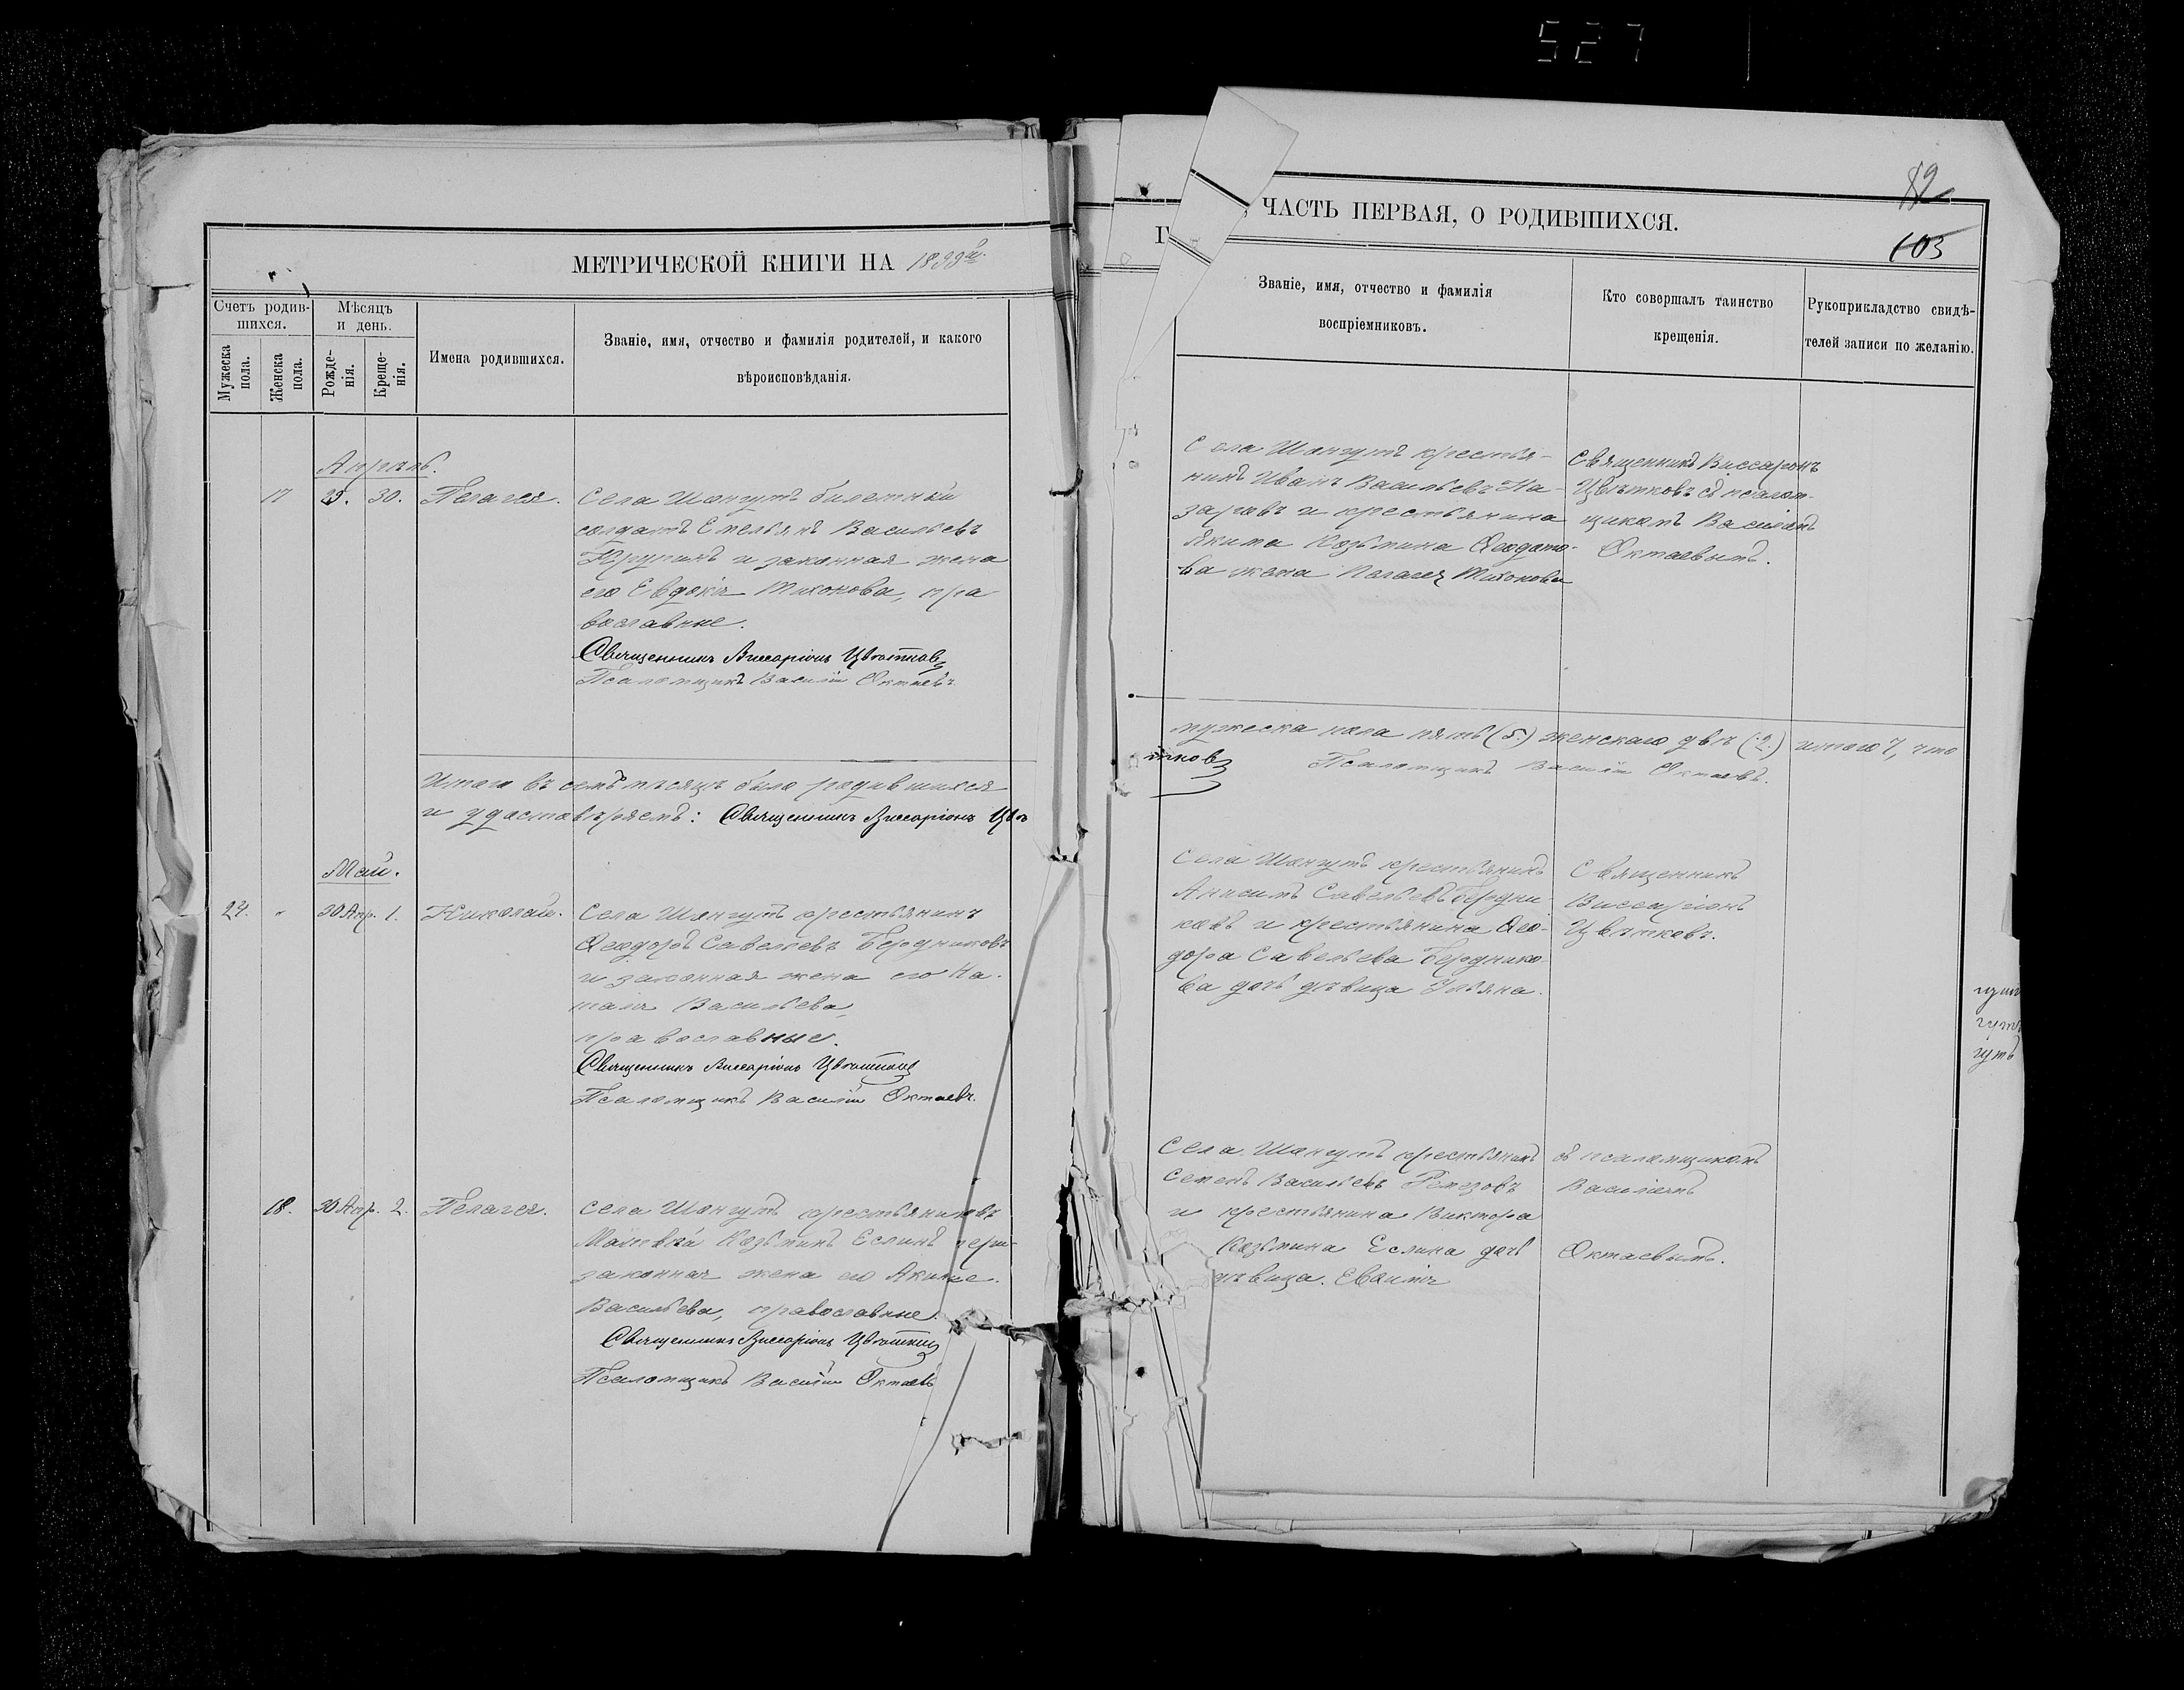 527
МЕТРИЧЕСКОЙ КНИГИ НА 1899й
Счетъ родив-
шихся.
Мѣсяцъ
и день.
Мужеска
пола.
Женска
пола.
Рожде-
нія.
Креще-
нія.
Имена родившихся.
Званіе, имя, отчество и фамилія родителей, и какого
вѣроисповѣданія.
Апрѣль.
17 30. Пелагея. Села Шангутъ билетный
солдатъ Емельянъ Васильевъ
и законная жена
его Евдокія Тихонова, пра
вославные.
Священникъ Виссаріонъ Цвѣтковъ
Псаломщикъ Василій Октаевъ.
Итого въ семъ мѣсяцѣ было родившихся
и удостовѣряемъ: Священникъ Виссаріонъ Цвѣ
Май.
30 Апр. 1. Николай. Села Шангутъ крестьянинъ
Ѳеодоръ Савельевъ Бердниковъ
и законная жена его На-
талія Васильева,
православные.
Священникъ Виссаріонъ Цвѣтковъ
Псаломщикъ Василій Октаевъ.
18. 30 Апр. 2. Пелагея. Села Шангутъ крестьянинъ
Козьминъ Еслинъ
законная жена его
Васильева, православные.
Священникъ Виссаріонъ Цвѣтковъ
Псаломщикъ Василій Октаевъ
82
ЧАСТЬ ПЕРВАЯ, О РОДИВШИХСЯ.
103
Званіе, имя, отчество и фамилія
воспріемниковъ.
Кто совершалъ таинство
крещенія.
Рукоприкладство свидѣ-
телей записи по желанію.
Села Шангутъ крестья-
нинъ Иванъ Васильевъ На-
заровъ и крестьянина
Якима Козьмина Ѳедото-
ва жена Пелагея Тихонова
Священникъ Виссаріонъ
Цвѣтковъ съ псалом-
щикомъ Василіемъ
Октаевымъ.
мужеска пола пять (5.) женскаго двѣ (2.) итого 7, что
тковъ Псаломщикъ Василій Октаевъ.
Села Шангутъ крестьянинъ
Анисимъ Савельевъ Бердни
ковъ и крестьянина Ѳео-
дора Савельева Берднико
ва дочь дѣвица Ульяна.
Священникъ
Виссаріонъ
Цвѣтковъ.
Села Шангутъ крестьянинъ
Семенъ Васильевъ Ремезовъ
и крестьянина Виктора
Козьмина Еслина дочь
дѣвица
съ псаломщикомъ
Василіемъ
Октаевымъ.